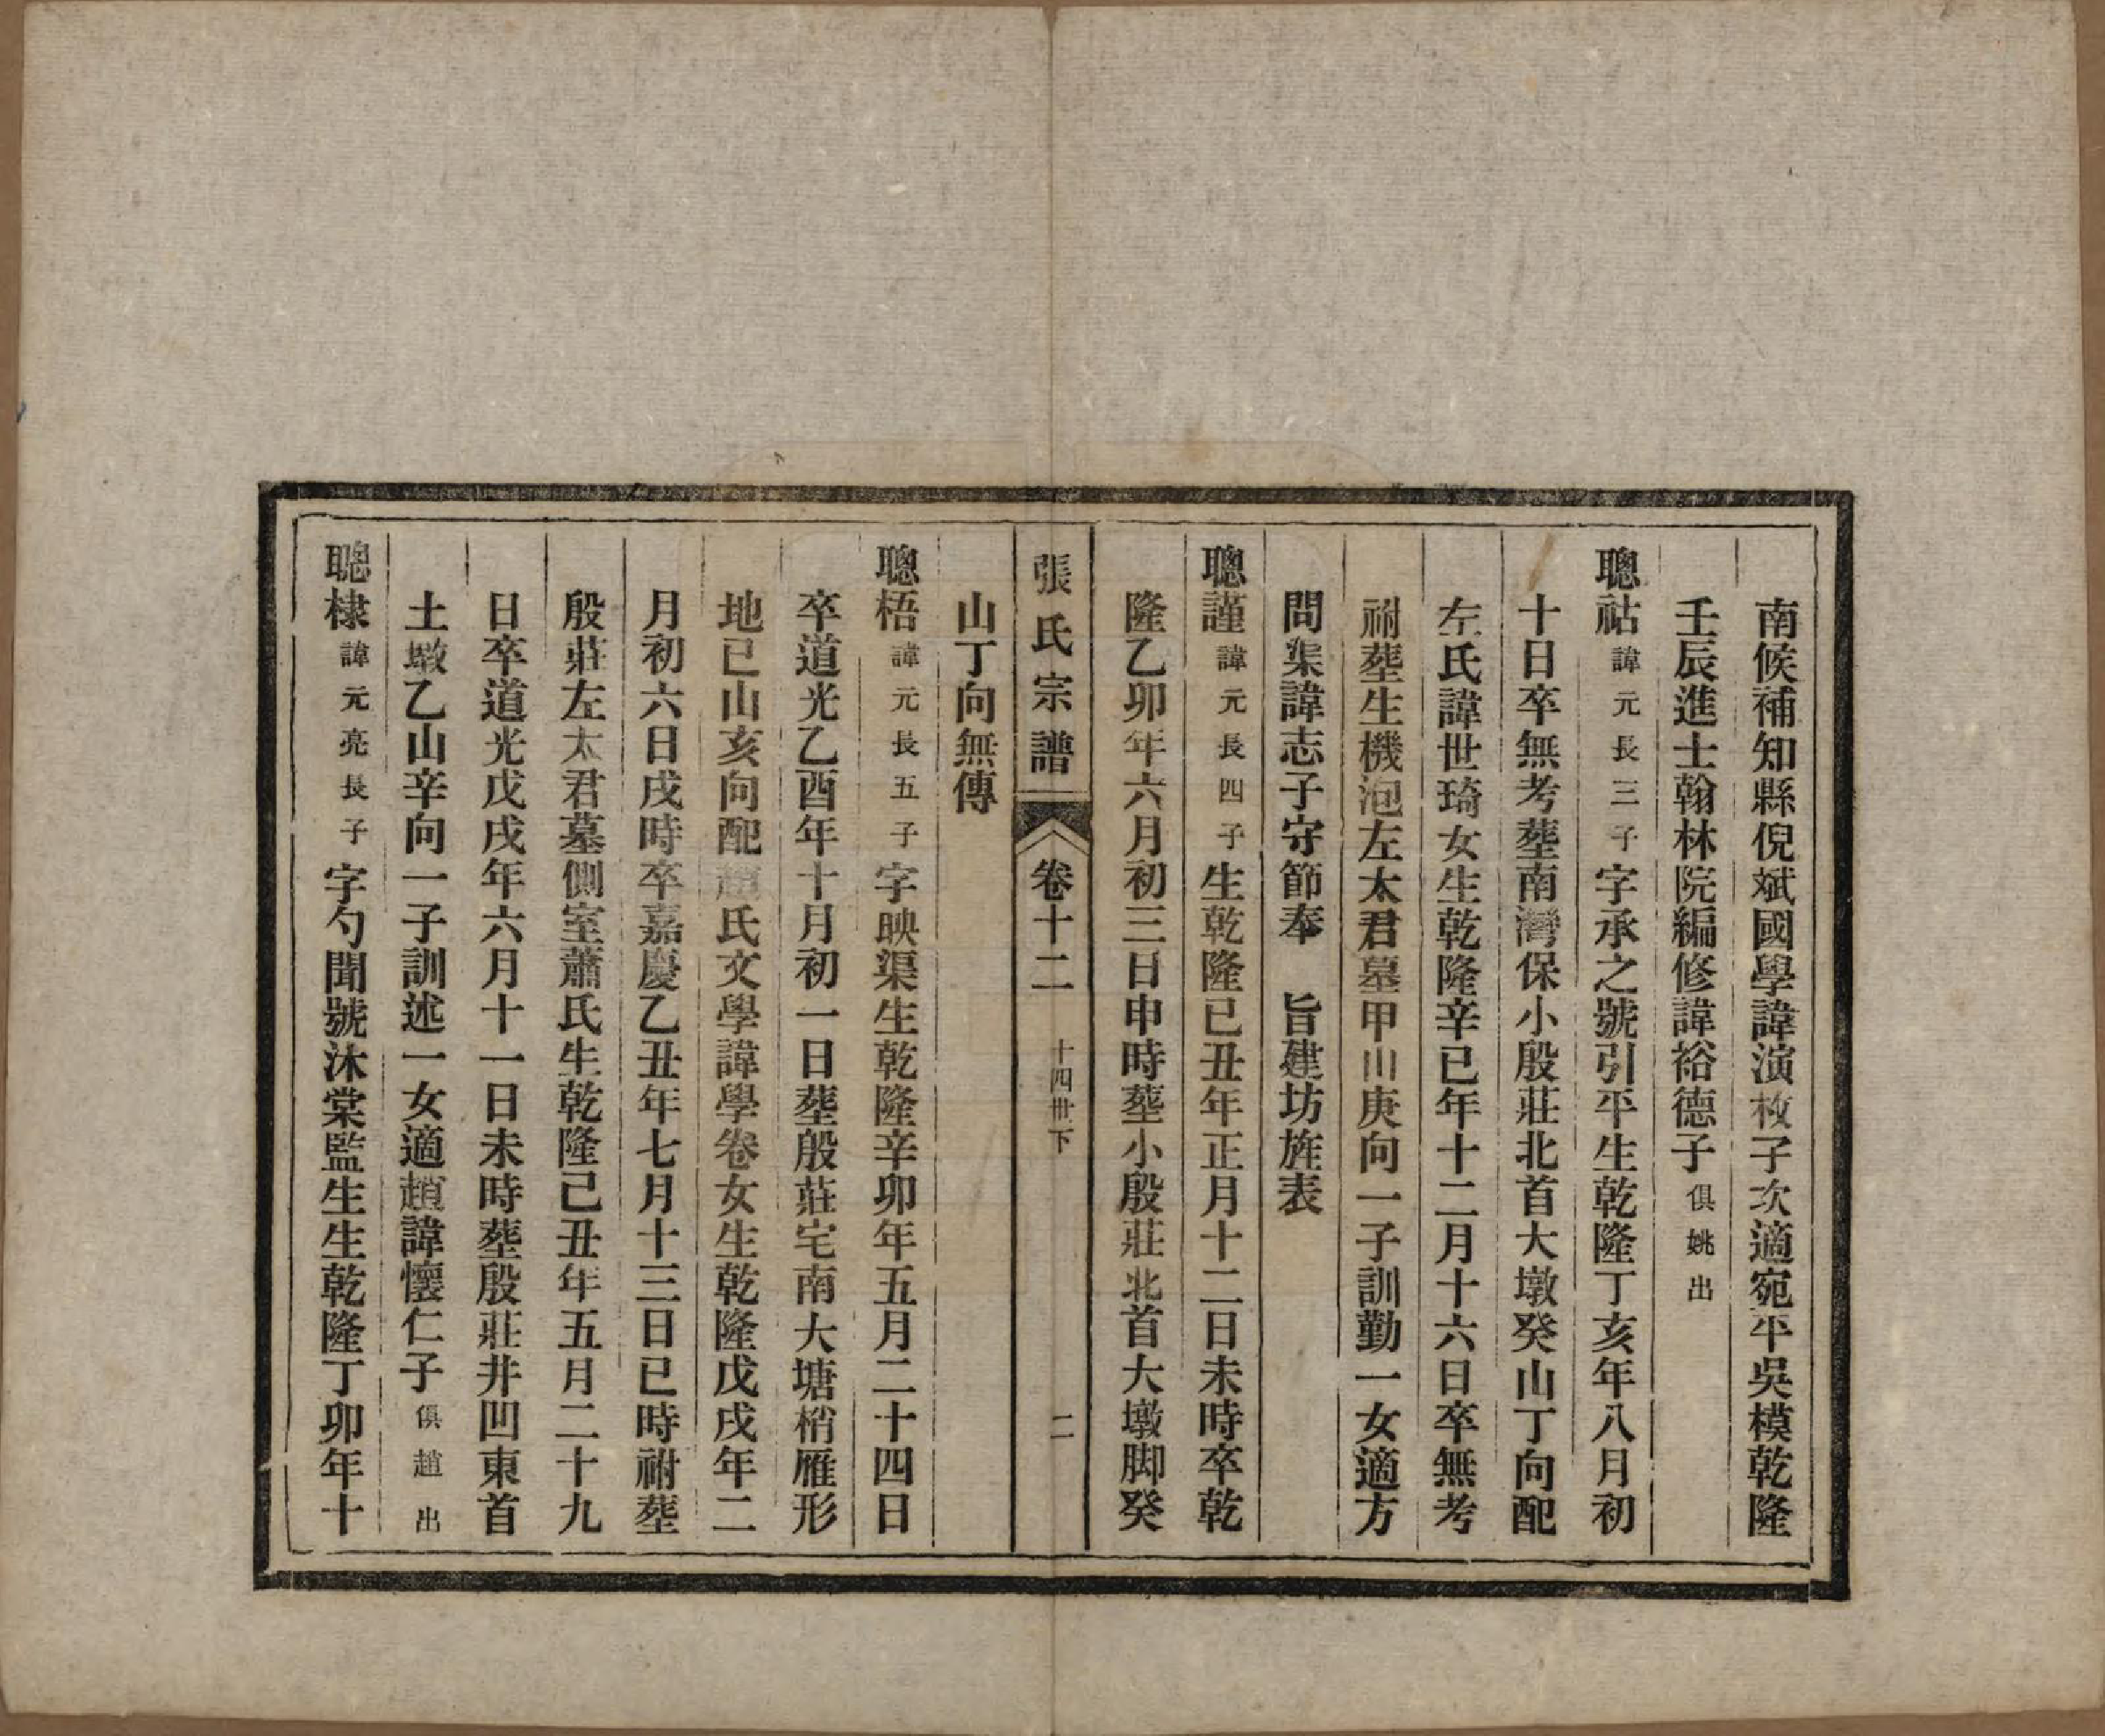 南候補知縣倪斌國學諱演枚子次適宛平吳模乾隆
壬辰進士翰林院編修諱裕德子俱姚出
聰祜諱元長三子字承之號引平生乾隆丁亥年八月初
十日卒無考葬南灣保小殷莊北首大墩癸山丁向配
左氏諱世琦女生乾隆辛巳年十二月十六日卒無考
祔葬生機泡左太君墓甲山庚向一子訓勤一女適方
問渠諱志子守節奉　旨建坊旌表
聰謹諱元長四子生乾隆已丑年正月十二日未時卒乾
隆乙卯年六月初三日申時葬小殷莊北首大墩脚癸
張氏宗譜　卷十二　十四世下　二
山丁向無傳
聰梧諱元長五子字映渠生乾隆辛卯年五月二十四日
卒道光乙酉年十月初一日葬殷莊宅南大塘梢雁形
地已山亥向配趙氏文學諱學卷女生乾隆戊戌年二
月初六日戌時卒嘉慶乙丑年七月十三日已時祔葬
殷莊左太君墓側室蕭氏生乾隆己丑年五月二十九
日卒道光戊戌年六月十一日未時葬殷莊井凹東首
土墩乙山辛向一子訓述一女適趙諱懷仁子俱趙出
聰棣諱元亮長子字勺聞號沐棠監生生乾隆丁卯年十